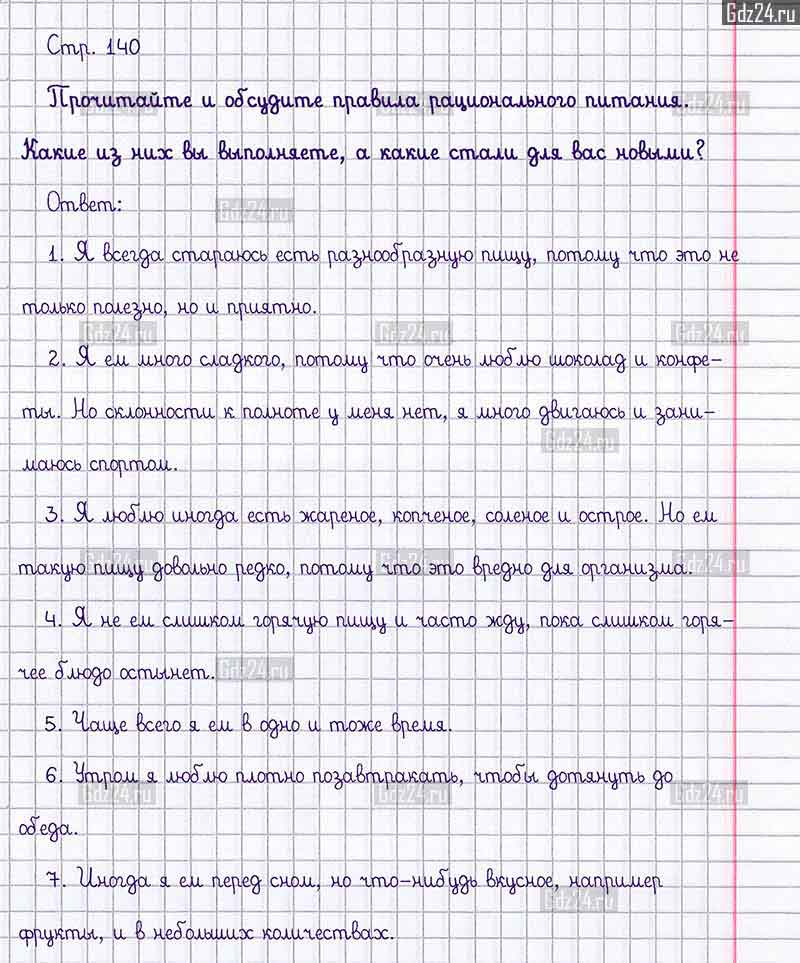 Gdz24.ru
Стр. 140
Прочитайте и обсудите правила рационального питания.
Какие из них вы выполняете, а какие стали для вас новыми?
Ответ:
1. Я всегда стараюсь есть разнообразную пищу, потому что это не
только полезно, но и приятно.
2. Я ем много сладкого, потому что очень люблю шоколад и конфе-
ты. Но склонности к полноте у меня нет, я много двигаюсь и зани-
маюсь спортом.
3. Я люблю иногда есть жареное, копченое, соленое и острое. Но ем
такую пищу довольно редко, потому что это вредно для организма.
4. Я не ем слишком горячую пищу и часто жду, пока слишком горя-
чее блюдо остынет.
5. Чаще всего я ем в одно и тоже время.
6. Утром я люблю плотно позавтракать, чтобы дотянуть до
обеда.
7. Иногда я ем перед сном, но что-нибудь вкусное, например
фрукты, и в небольших количествах.